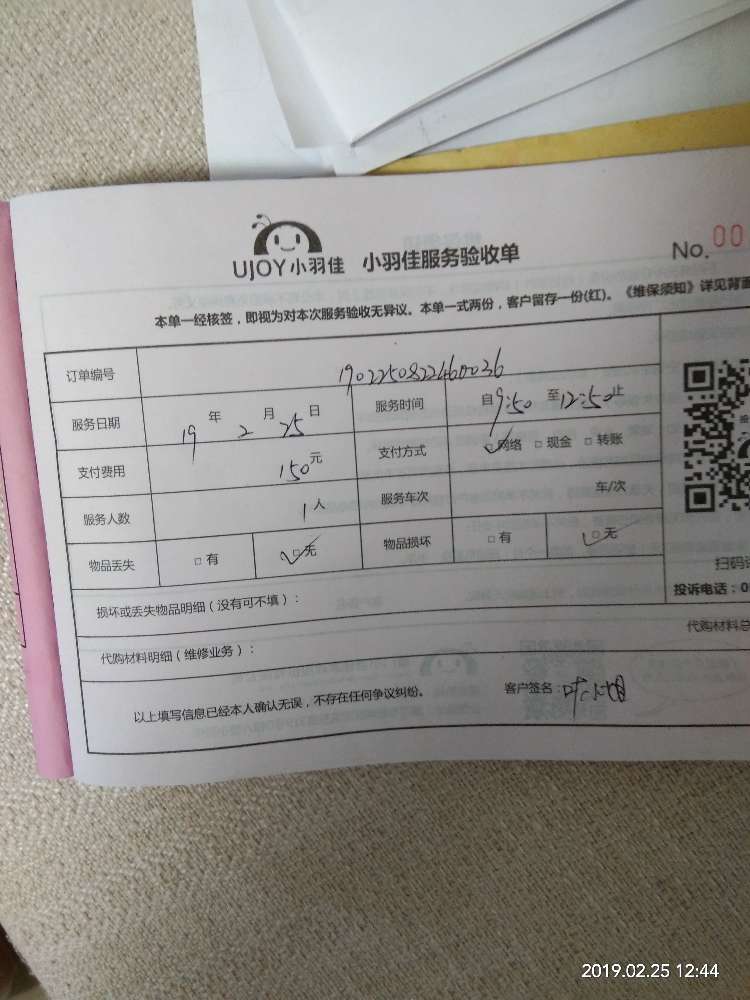 UJOY小羽佳 小羽佳服务验收单 No.00
本单一经核签，即视为对本次服务验收无异议。本单一式两份，客户留存一份(红)。《维保须知》详见背面
订单编号 1902250822460036
服务日期 19年2月25日 服务时间 自9:50至12:50止
支付费用 150元 支付方式 ☑网络 □现金 □转账
服务人数 1人 服务车次 车/次
物品丢失 □有 ☑无 物品损坏 □有 ☑无
扫码
损坏或丢失物品明细（没有可不填）： 投诉电话：0
代购材料明细（维修业务）： 代购材料总
以上填写信息已经本人确认无误，不存在任何争议纠纷。 客户签名：叶小姐
2019.02.25 12:44